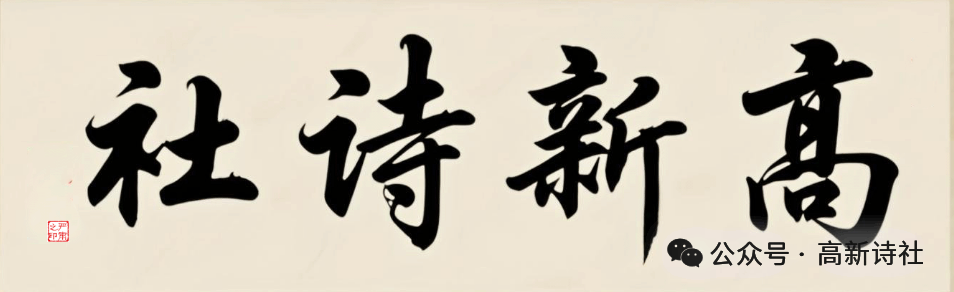 高新诗社
公众号·高新诗社